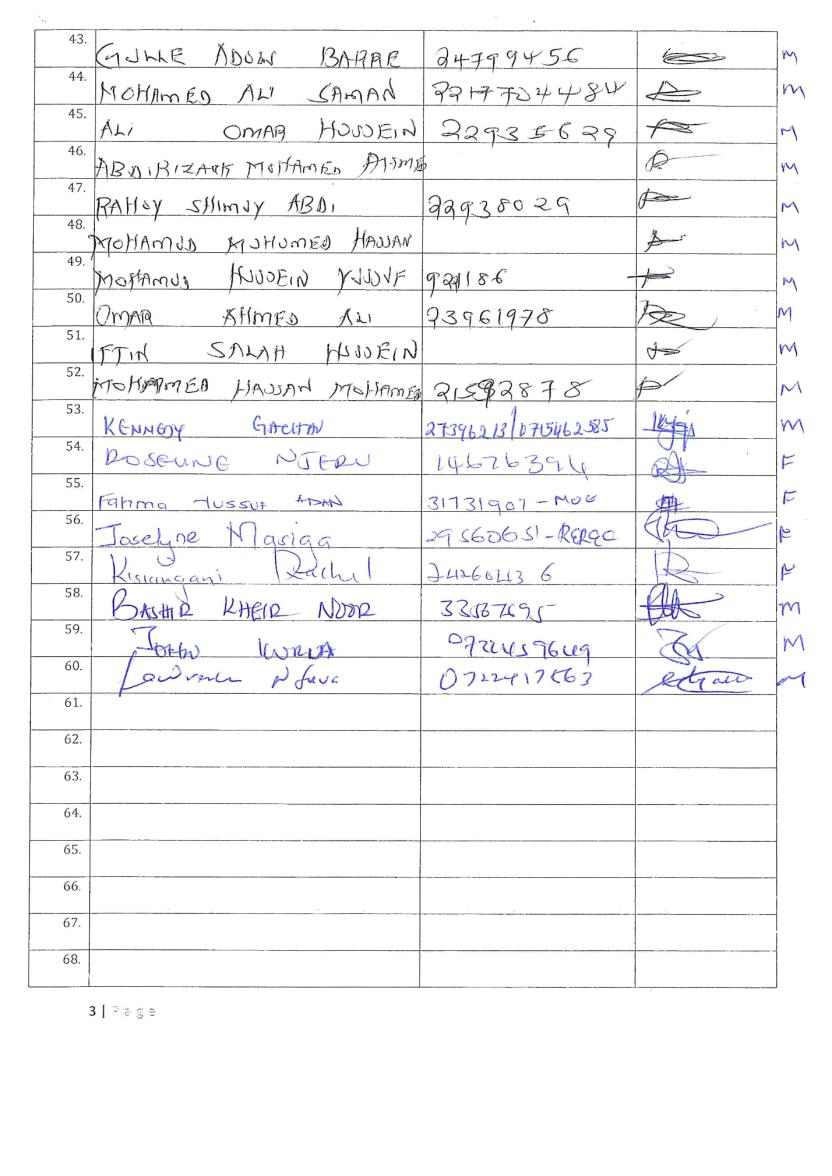 43. GULLE ADOW BARRE 24799456 M
44. MOHAMED ALI SAMAN M
45. ALI OMAR HUSSEIN 22935629 M
46. ABDIRIZACK MOHAMED M
47. RAHOY SHIMOY ABDI 22938029 M
48. MOHAMUD MOHUMED HASSAN M
49. MOHAMUD HUSSEIN YUSSUF M
50. OMAR AHMED ALI 23961978 M
51. IFTIN SALAH HUSSEIN M
52. MOHAMMED HASSAN MOHAMED M
53. KENNEDY 27396213/0715462585 M
54. ROSELINE NJERU 14676394 F
55. Fahma Yussuf ADAN 31731907 - F
56. Joselyne Masiga 29560651 - REREC F
57. Kisiangani Rachel F
58. BASHIR KHEIR NOOR M
59. JOHN M
60. Lawrence M
61.
62.
63.
64.
65.
66.
67.
68.
3 | Page